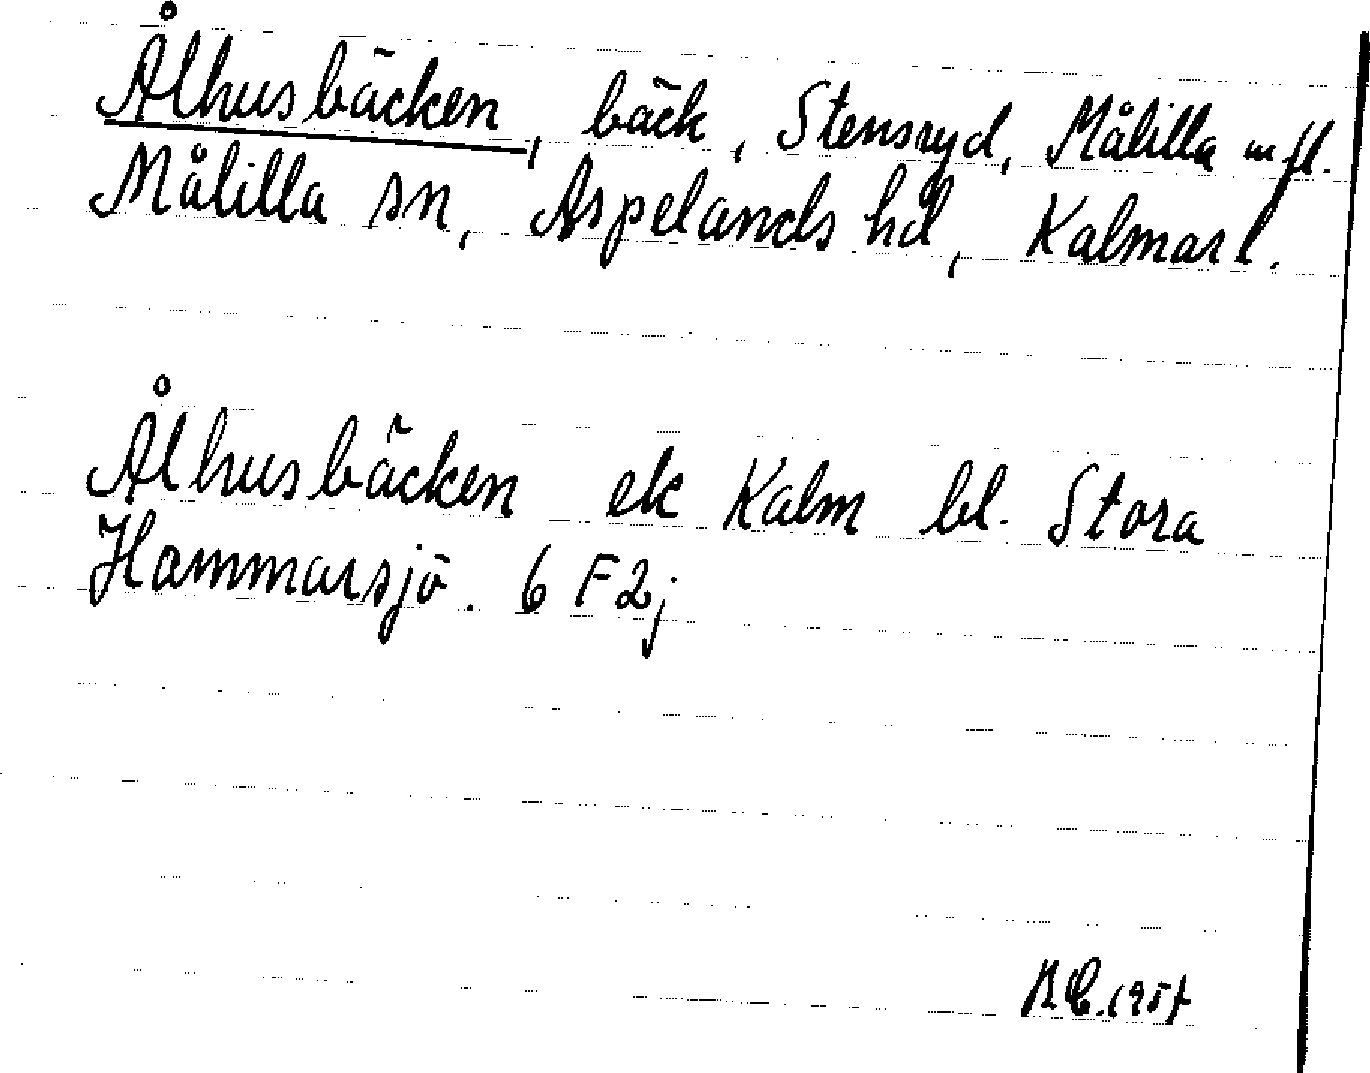 Ålhusbäcken, bäck, Stensryd, Målilla m fl.
Målilla sn, Aspelands hd, Kalmar l.
Ålhusbäcken ek Kalm bl. Stora
Hammarsjö. 6 F2j
1957